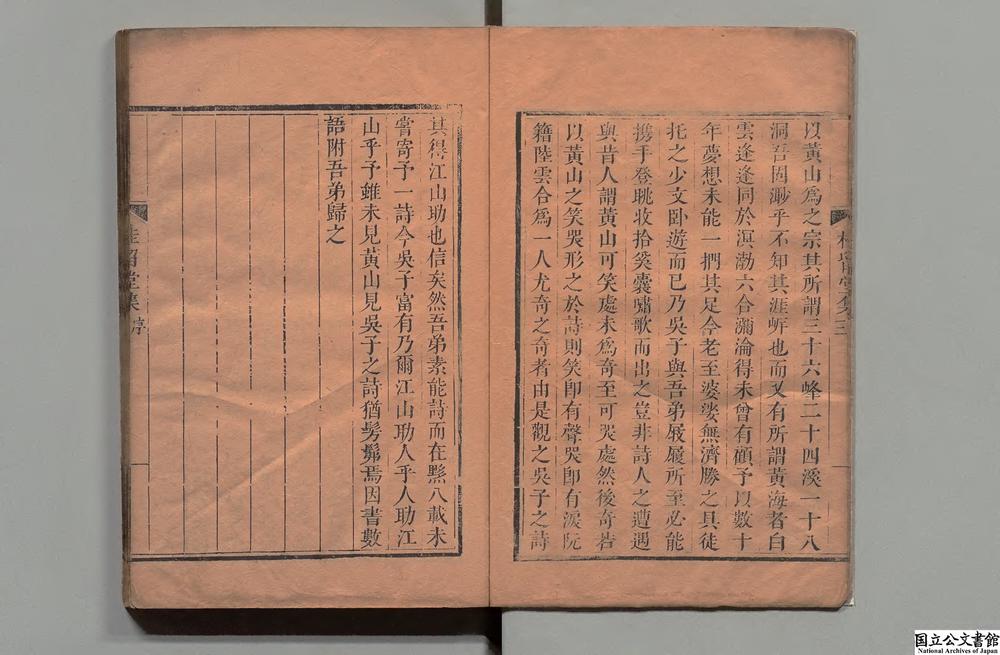 以黃山爲之宗其所謂三十六峰二十四溪一十八
洞吾固渺乎不知其涯岸也而又有所謂黃海者白
雲逢逢同於溟渤六合瀰淪得未曾有顧予以數十
年夢想未能一捫其足今老至婆娑無濟勝之具徒
托之少文臥遊而已乃吳子與吾弟屐履所至必能
携手登眺收拾奚囊嘯歌而出之豈非詩人之遭遇
與昔人謂黃山可笑處未爲奇至可哭處然後奇若
以黃山之笑哭形之於詩則笑卽有聲哭卽有淚阮
籍陸雲合爲一人尤奇之奇者由是觀之吳子之詩
其得江山助也信矣然吾弟素能詩而在黟八載未
嘗寄予一詩今吳子富有乃爾江山助人乎人助江
山乎予雖未見黃山見吳子之詩猶髣髴焉因書數
語附吾弟歸之
桂留堂集 序
国立公文書館
National Archives of Japan